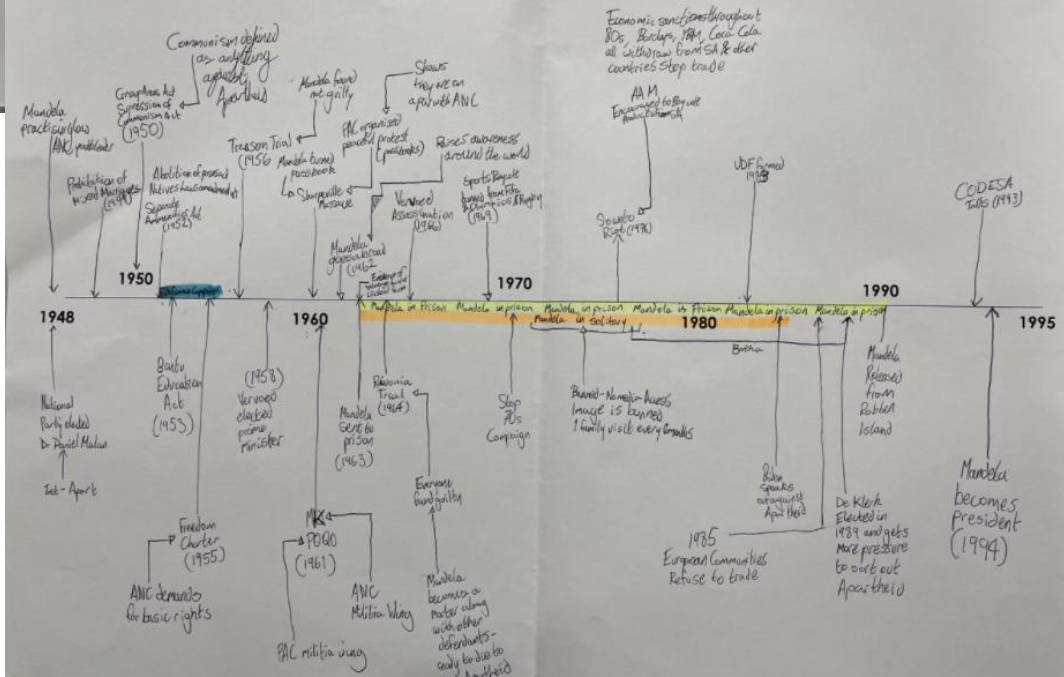 Communism defined
as anything
against
Apartheid
Mandela
practising law
ANC youth leader
Prohibition of
Mixed Marriages
Group Areas Act
Supression of
Communism Act
(1950)
Abolition of passes and
Natives laws amendment
Separate
Amenities Act
(1952)
Treason Trial
(1956
Mandela found
not guilty
Mandela burned
Passbook
Sharpeville
Massacre
PAC organised
peaceful protest
(passbooks)
Shows
they are on
a par with ANC
Raises awareness
around the world
Mandela
goes abroad
(1962
Verwoed
Assassination
(1966)
Sports Boycott
banned from Fifa
Olympics & Rugby
(1969)
Economic sanctions throughout
80s, Barclays, IBM, Coca Cola
all withdraw from SA & other
countries stop trade
AAM
Encouraged to Boycott
Soweto
Riot (1976)
UDF formed
CODESA
Talks (1993)
1950
1970
1990
1948
1960
1980
1995
Mandela in Prison Mandela in prison Mandela in prison Mandela in Prison Mandela in prison Mandela in prison
Mandela in solitary
Botha
National
Party elected
Dr Daniel Malan
Bantu
Education
Act
(1953)
Freedom
Charter
(1955)
ANC demands
for basic rights
(1958)
Vervoed
elected
prime
Minister
MK
POQO
(1961)
PAC militia wing
ANC
Militia Wing
Mandela
sent to
prison
(1963)
Rivonia
Trial
(1964)
Everyone
found guilty
Mandela
becomes a
marter along
with other
defendants-
ready to die to
Apartheid
Stop
70s
Campaign
Banned-Named in Access
Image is banned
1 family visit every 6 months
Biden
speaks
out against
Apartheid
1985
European Communities
Refuse to trade
De Klerk
Elected in
1989 and gets
More pressure
to sort out
Apartheid
Mandela
Released
from
Robben
Island
Mandela
becomes
president
(1994)